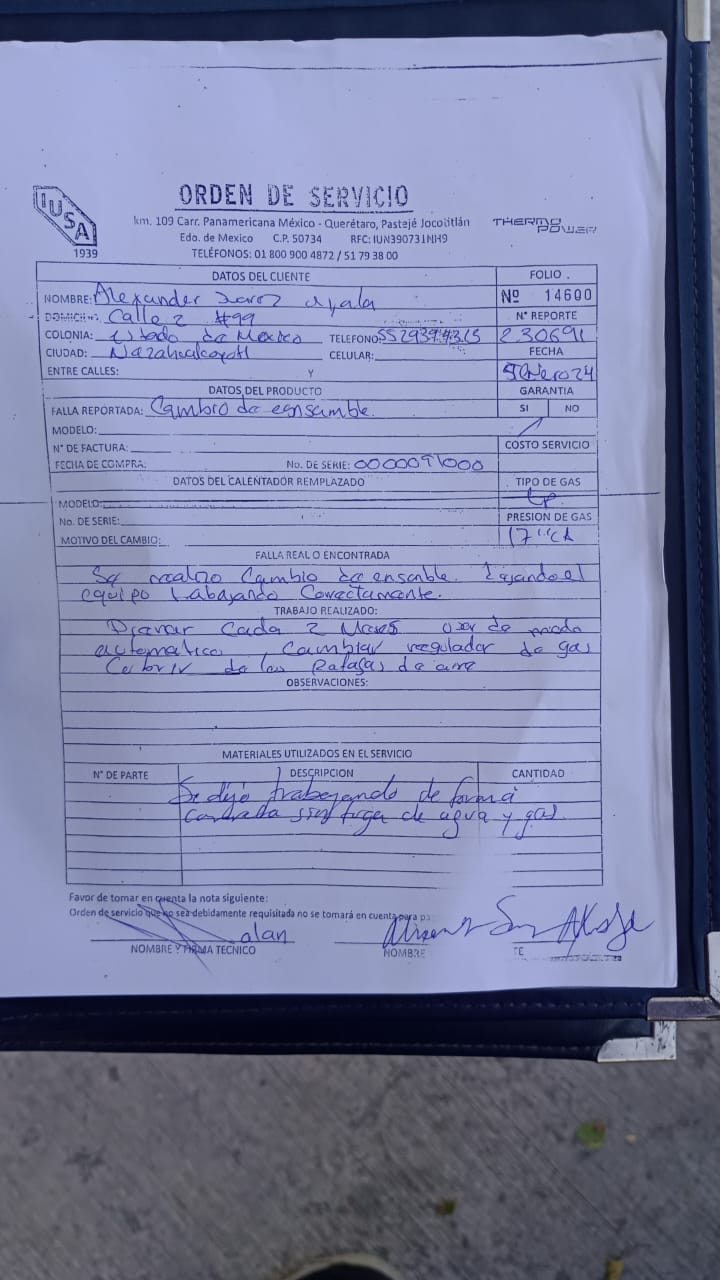 IUSA
1939
ORDEN DE SERVICIO
km. 109 Carr. Panamericana México - Querétaro, Pastejé Jocotitlán
Edo. de Mexico C.P. 50734 RFC: IUN390731NH9
TELÉFONOS: 01 800 900 4872 / 51 79 38 00
THERMO POWER
DATOS DEL CLIENTE FOLIO .
NOMBRE: Alexander Ayala Nº 14600
DOMICILIO: Calle 2 #99 N° REPORTE
COLONIA: Estado de Mexico TELEFONO: 230691
CIUDAD: CELULAR: FECHA
ENTRE CALLES: Y 24
DATOS DEL PRODUCTO GARANTIA
FALLA REPORTADA: Cambio de ensamble. SI NO
MODELO:
N° DE FACTURA: COSTO SERVICIO
FECHA DE COMPRA: No. DE SERIE:
DATOS DEL CALENTADOR REMPLAZADO TIPO DE GAS
MODELO: Lp
No. DE SERIE: PRESION DE GAS
MOTIVO DEL CAMBIO: 17"CA
FALLA REAL O ENCONTRADA
Se realizo Cambio de ensamble. el
equipo trabajando Correctamente.
TRABAJO REALIZADO:
Drenar Cada 2 Meses modo
automatico, Cambiar regulador de gas
de las Rafagas de aire
OBSERVACIONES:
MATERIALES UTILIZADOS EN EL SERVICIO
N° DE PARTE DESCRIPCION CANTIDAD
Se dejo trabajando de forma
sin fuga de agua y gas
Favor de tomar en cuenta la nota siguiente:
Orden de servicio que no sea debidamente requisitada no se tomará en cuenta para pa
alan
NOMBRE Y FIRMA TECNICO NOMBRE TE